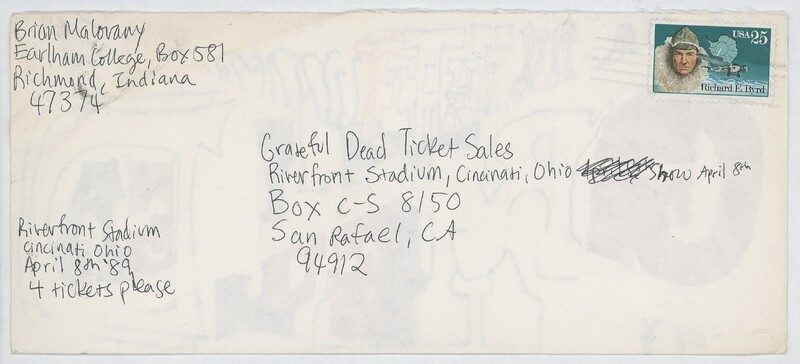 Brian Malovany
Earlham College, Box 581
Richmond, Indiana
47374
USA 25
Richard E. Byrd
Grateful Dead Ticket Sales
Riverfront Stadium, Cincinati, Ohio Show April 8th
Box C-S 8150
San Rafael, CA
94912
Riverfront Stadium
Cincinati Ohio
April 8th '89
4 tickets please